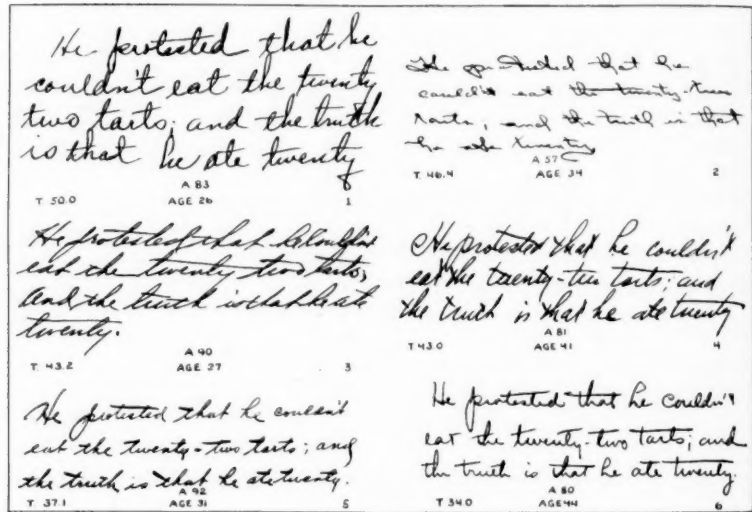 He protested that he
couldn't eat the twenty
two tarts; and the truth
is that he ate twenty
A 83
T 50.0 AGE 26 1
He protested that he
couldn't eat the twenty-two
tarts, and the truth is that
he ate twenty
A 57
T 46.4 AGE 34 2
He protested that he couldn't
eat the twenty two tarts,
and the truth is that he ate
twenty.
A 90
T. 43.2 AGE 27 3
He protested that he couldn't
eat the twenty-two tarts; and
the truth is that he ate twenty
A 81
T 43.0 AGE 41 4
He protested that he couldn't
eat the twenty-two tarts; and
the truth is that he ate twenty.
A 92
T. 37.1 AGE 31 5
He protested that he couldn't
eat the twenty-two tarts; and
the truth is that he ate twenty.
A 80
T 34.0 AGE 44 6